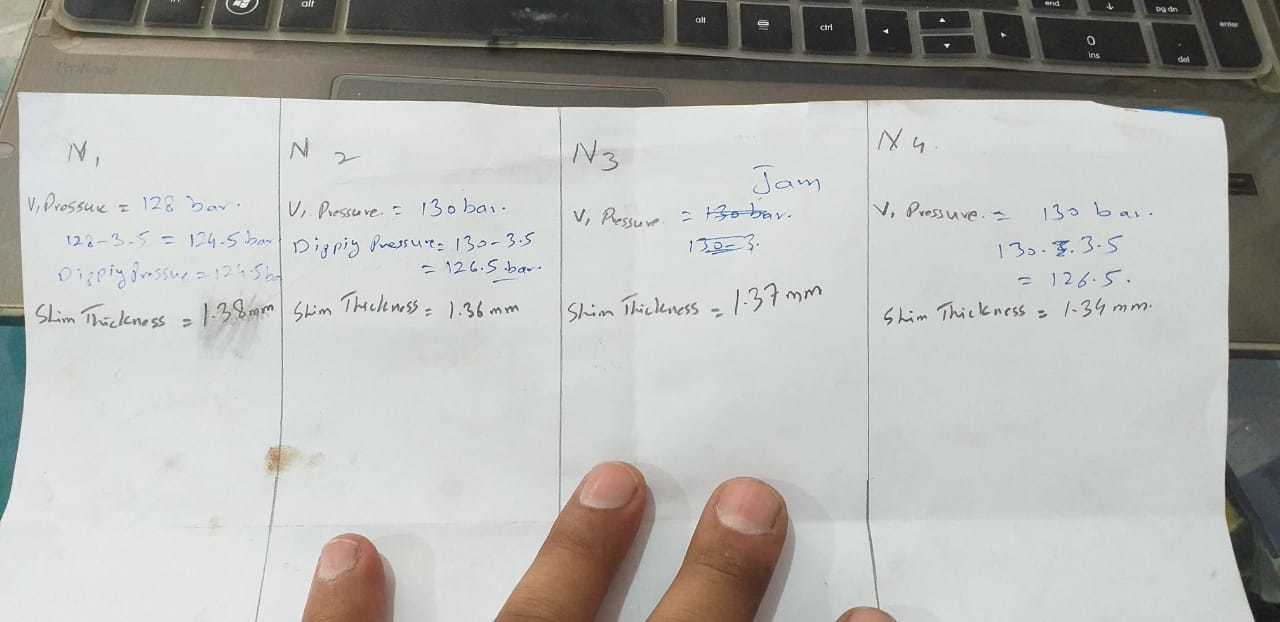 alt
alt
ctrl
end
pg dn
enter
0
ins
del
ProBook
N1
V1 Prossure = 128 bar.
128-3.5 = 124.5 bar
Dippiy Prossure = 124.5 ba
Shim Thickness = 1.38mm
N 2
V1 Pressure = 130 bar.
Dippiy Pressure = 130-3.5
= 126.5 bar.
Shim Thickness = 1.36 mm
N3
Jam
V1 Pressure = 130 bar.
130-3.
Shim Thickness = 1.37 mm
N 4.
V1 Pressure. = 130 bar.
130. 3.5
= 126.5.
Shim Thickness = 1.34 mm.